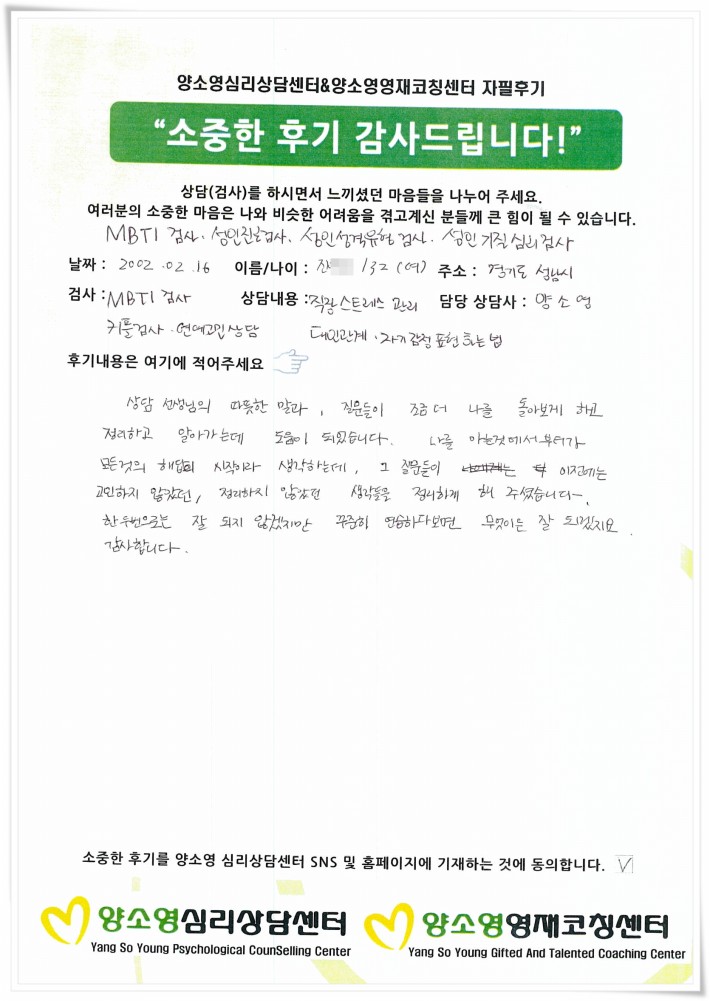 양소영심리상담센터&양소영영재코칭센터 자필후기
“소중한 후기 감사드립니다!”
상담(검사)를 하시면서 느끼셨던 마음들을 나누어 주세요.
여러분의 소중한 마음은 나와 비슷한 어려움을 겪고계신 분들께 큰 힘이 될 수 있습니다.
MBTI 검사. 성인진로검사. 성인성격유형 검사. 성인기질심리검사
날짜 : 2002.02.16 이름/나이 : /32 (여) 주소 : 경기도 성남시
검사 : MBTI 검사 상담내용 : 직장스트레스 관리 담당 상담사 : 양소영
커플검사. 연애고민상담 대인관계. 자기감정표현 하는 법
후기내용은 여기에 적어주세요
상담 선생님의 따뜻한 말과, 질문들이 조금 더 나를 돌아보게 하고
정리하고 알아가는데 도움이 되었습니다. 나를 아는것에서부터가
모든것의 해답의 시작이라 생각하는데, 그 질문들이 이전에는
고민하지 않았던, 정리하지 않았던 생각들을 정리하게 해 주셨습니다.
한두번으로는 잘 되지 않겠지만 꾸준히 연습하다보면 무엇이든 잘 되겠지요.
감사합니다.
소중한 후기를 양소영 심리상담센터 SNS 및 홈페이지에 기재하는 것에 동의합니다. ✓
양소영심리상담센터 양소영영재코칭센터
Yang So Young Psychological CounSelling Center Yang So Young Gifted And Talented Coaching Center